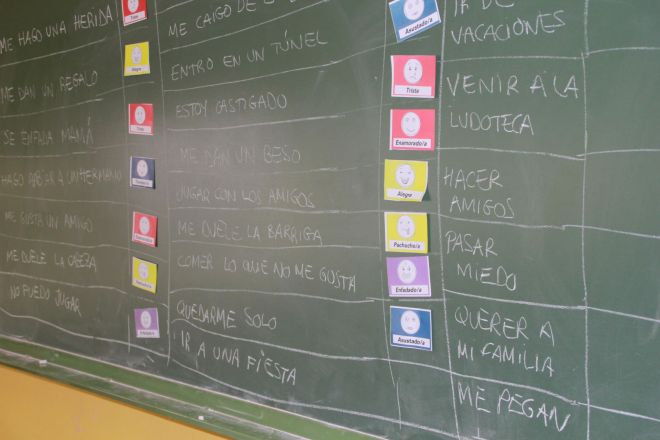 ME HAGO UNA HERIDA
ME DAN UN REGALO
SE ENFADA MAMÁ
UN HERMANO
ME GUSTA UN AMIGO
ME DUELE LA CABEZA
NO PUEDO JUGAR
Triste
Alegre
Triste
ME CAIGO DE
ENTRO EN UN TÚNEL
ESTOY CASTIGADO
ME DAN UN BESO
JUGAR CON LOS AMIGOS
ME DUELE LA BARRIGA
COMER LO QUE NO ME GUSTA
QUEDARME SOLO
IR A UNA FIESTA
Asustado/a
Triste
Enamorado/a
Alegre
Pachucho/a
Enfadado/a
Asustado/a
IR DE
VACACIONES
VENIR A LA
LUDOTECA
HACER
AMIGOS
PASAR
MIEDO
QUERER A
MI FAMILIA
ME PEGAN